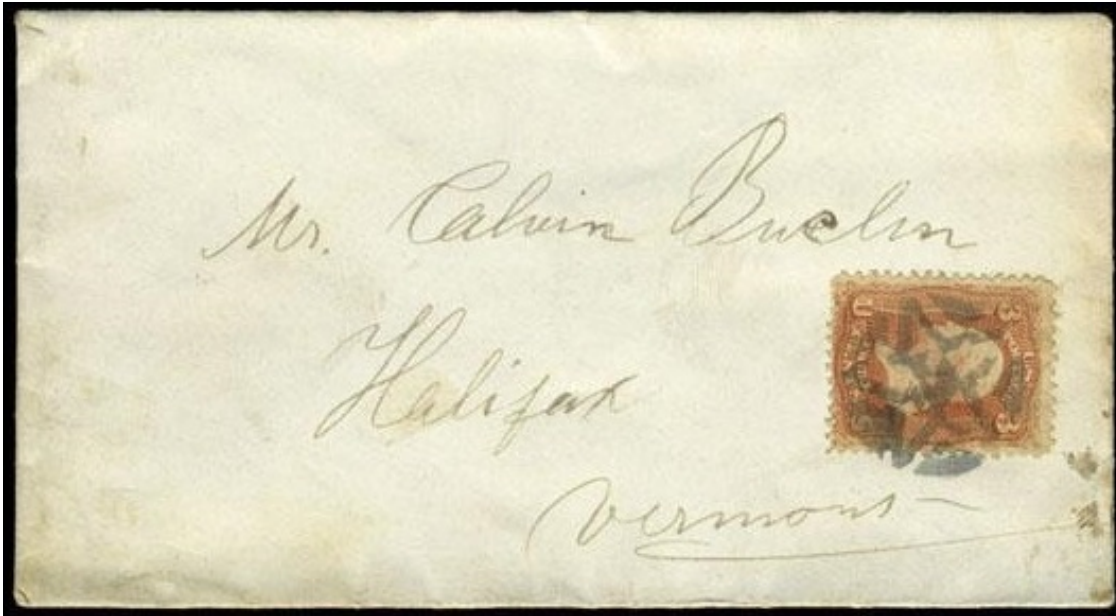 Mr. Calvin Buclin
Halifax
Vermont
3 3